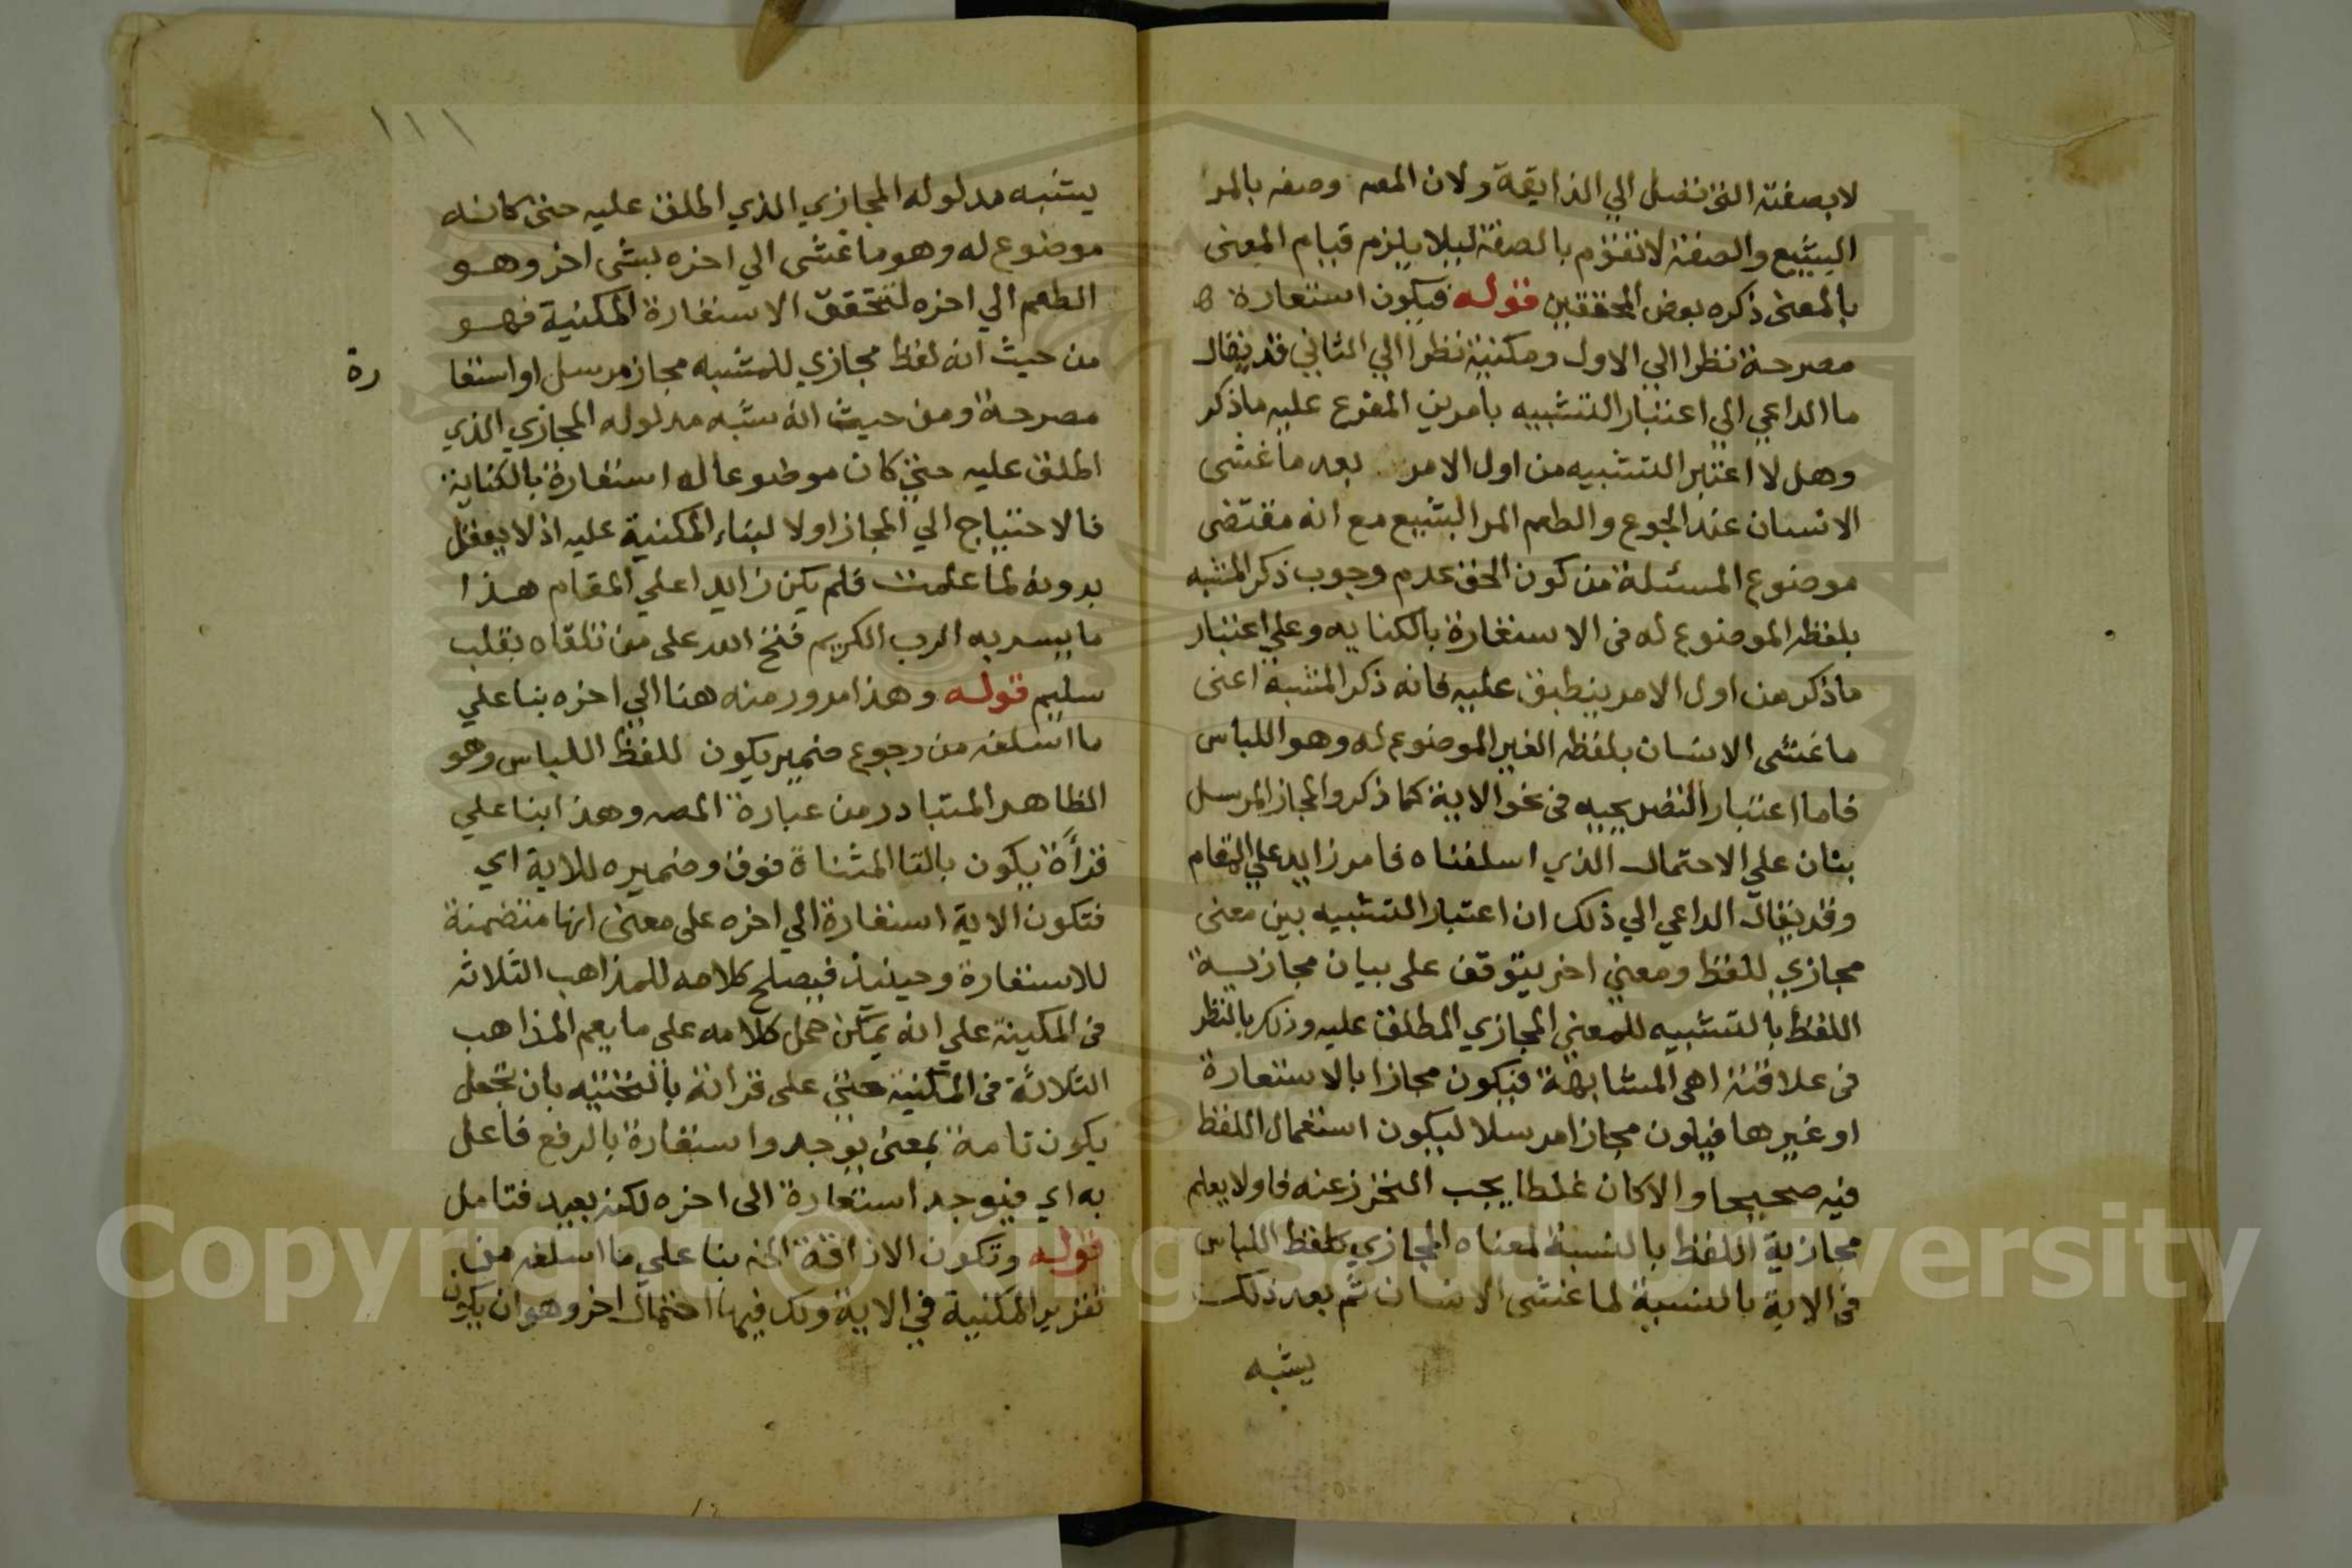 لابصفته التى تفصل الي الذايقة ولان المص وصفه بالمر
البشيع والصفة لا تقوم بالصفة ليلا يلزم قيام المعنى
بالمعنى ذكره بعض المحققين قوله فيكون استعارة
مصرحة نظرا الي الاول ومكنية نظرا الي الثاني قد يقال
ما الداعي الي اعتبار التشبيه بامرين المفرع عليه ماذكر
وهل لا اعتبر التشبيه من اول الامر بعد ما غشى
الانسان عند الجوع والطعم المر البشيع مع انه مقتضى
موضوع المسئلة من كون الحق عدم وجوب ذكر المشبه
بلفظه الموضوع له فى الاستعارة بالكنايه وعلي اعتبار
ماذكر من اول الامر ينطبق عليه فانه ذكر المشبه اعنى
ما غشى الانسان بلفظه الغير الموضوع له وهو اللباس
فاما اعتبار التصريحيه فى نحو الاية كما ذكر والمجاز المرسل
بثان علي الاحتمال الذي اسلفناه فامر زايد علي المقام
وقد يقال الداعي الي ذلك ان اعتبار التشبيه بين معنى
مجازي للفظ ومعنى اخر يتوقف على بيان مجازية
اللفظ بالتشبيه للمعنى المجازي المطلق عليه وذلك بالنظر
فى علاقته اهى المشابهة فيكون مجازا بالاستعارة
او غيرها فيكون مجازا مرسلا ليكون استعمال اللفظ
فيه صحيحا والا كان غلطا يجب التحرز عنه فاولا يعلم
مجازية اللفظ بالنسبة لمعناه المجازي كلفظ اللباس
فى الاية بالنسبة لما غشى الانسان ثم بعد ذلك
يشبه
١١١
يشبه مدلوله المجازي الذي اطلق عليه حتى كانه
موضوع له وهو ما غشى الي اخره بشى اخر وهو
الطعم الي اخره لتتحقق الاستعارة المكنية فهو
من حيث انه لفظ مجازي للمشبه مجاز مرسل او استعا
رة
مصرحة ومن حيث انه شبه مدلوله المجازي الذي
اطلق عليه حتى كان موضوعا له استعارة بالكناية
فالاحتياج الي المجاز اولا لبناء المكنية عليه اذ لا يعقل
بدونه لما علمت فلم يكن زايدا علي المقام هذا
ما يسر به الرب الكريم فتح الله على من تلقاه بقلب
سليم قوله وهذا مرور منه هنا الي اخره بنا علي
ما اسلفه من رجوع ضمير يكون للفظ اللباس وهو
الظاهر المتبادر من عبارة المص وهذا بنا علي
قرأة يكون بالتا المثناة فوق وضميره للاية اي
فتكون الاية استعارة الي اخره على معنى انها متضمنة
للاستعارة وحينيذ فيصلح كلامه للمذاهب الثلاثه
فى المكينة علي انه يمكن حمل كلامه على ما يعم المذاهب
الثلاثة فى المكنية حتى على قرانة بالتحتيه بان تجعل
يكون تامة بمعنى يوجد واستعارة بالرفع فاعل
به اي فيوجد استعارة الى اخره لكنه بعيد فتامل
قوله وتكون الاذاقة الخ بنا علي ما اسلفه من
تقرير المكنية في الاية ولك فيها احتمال اخر وهو ان يكون
Copyright © King Saud University